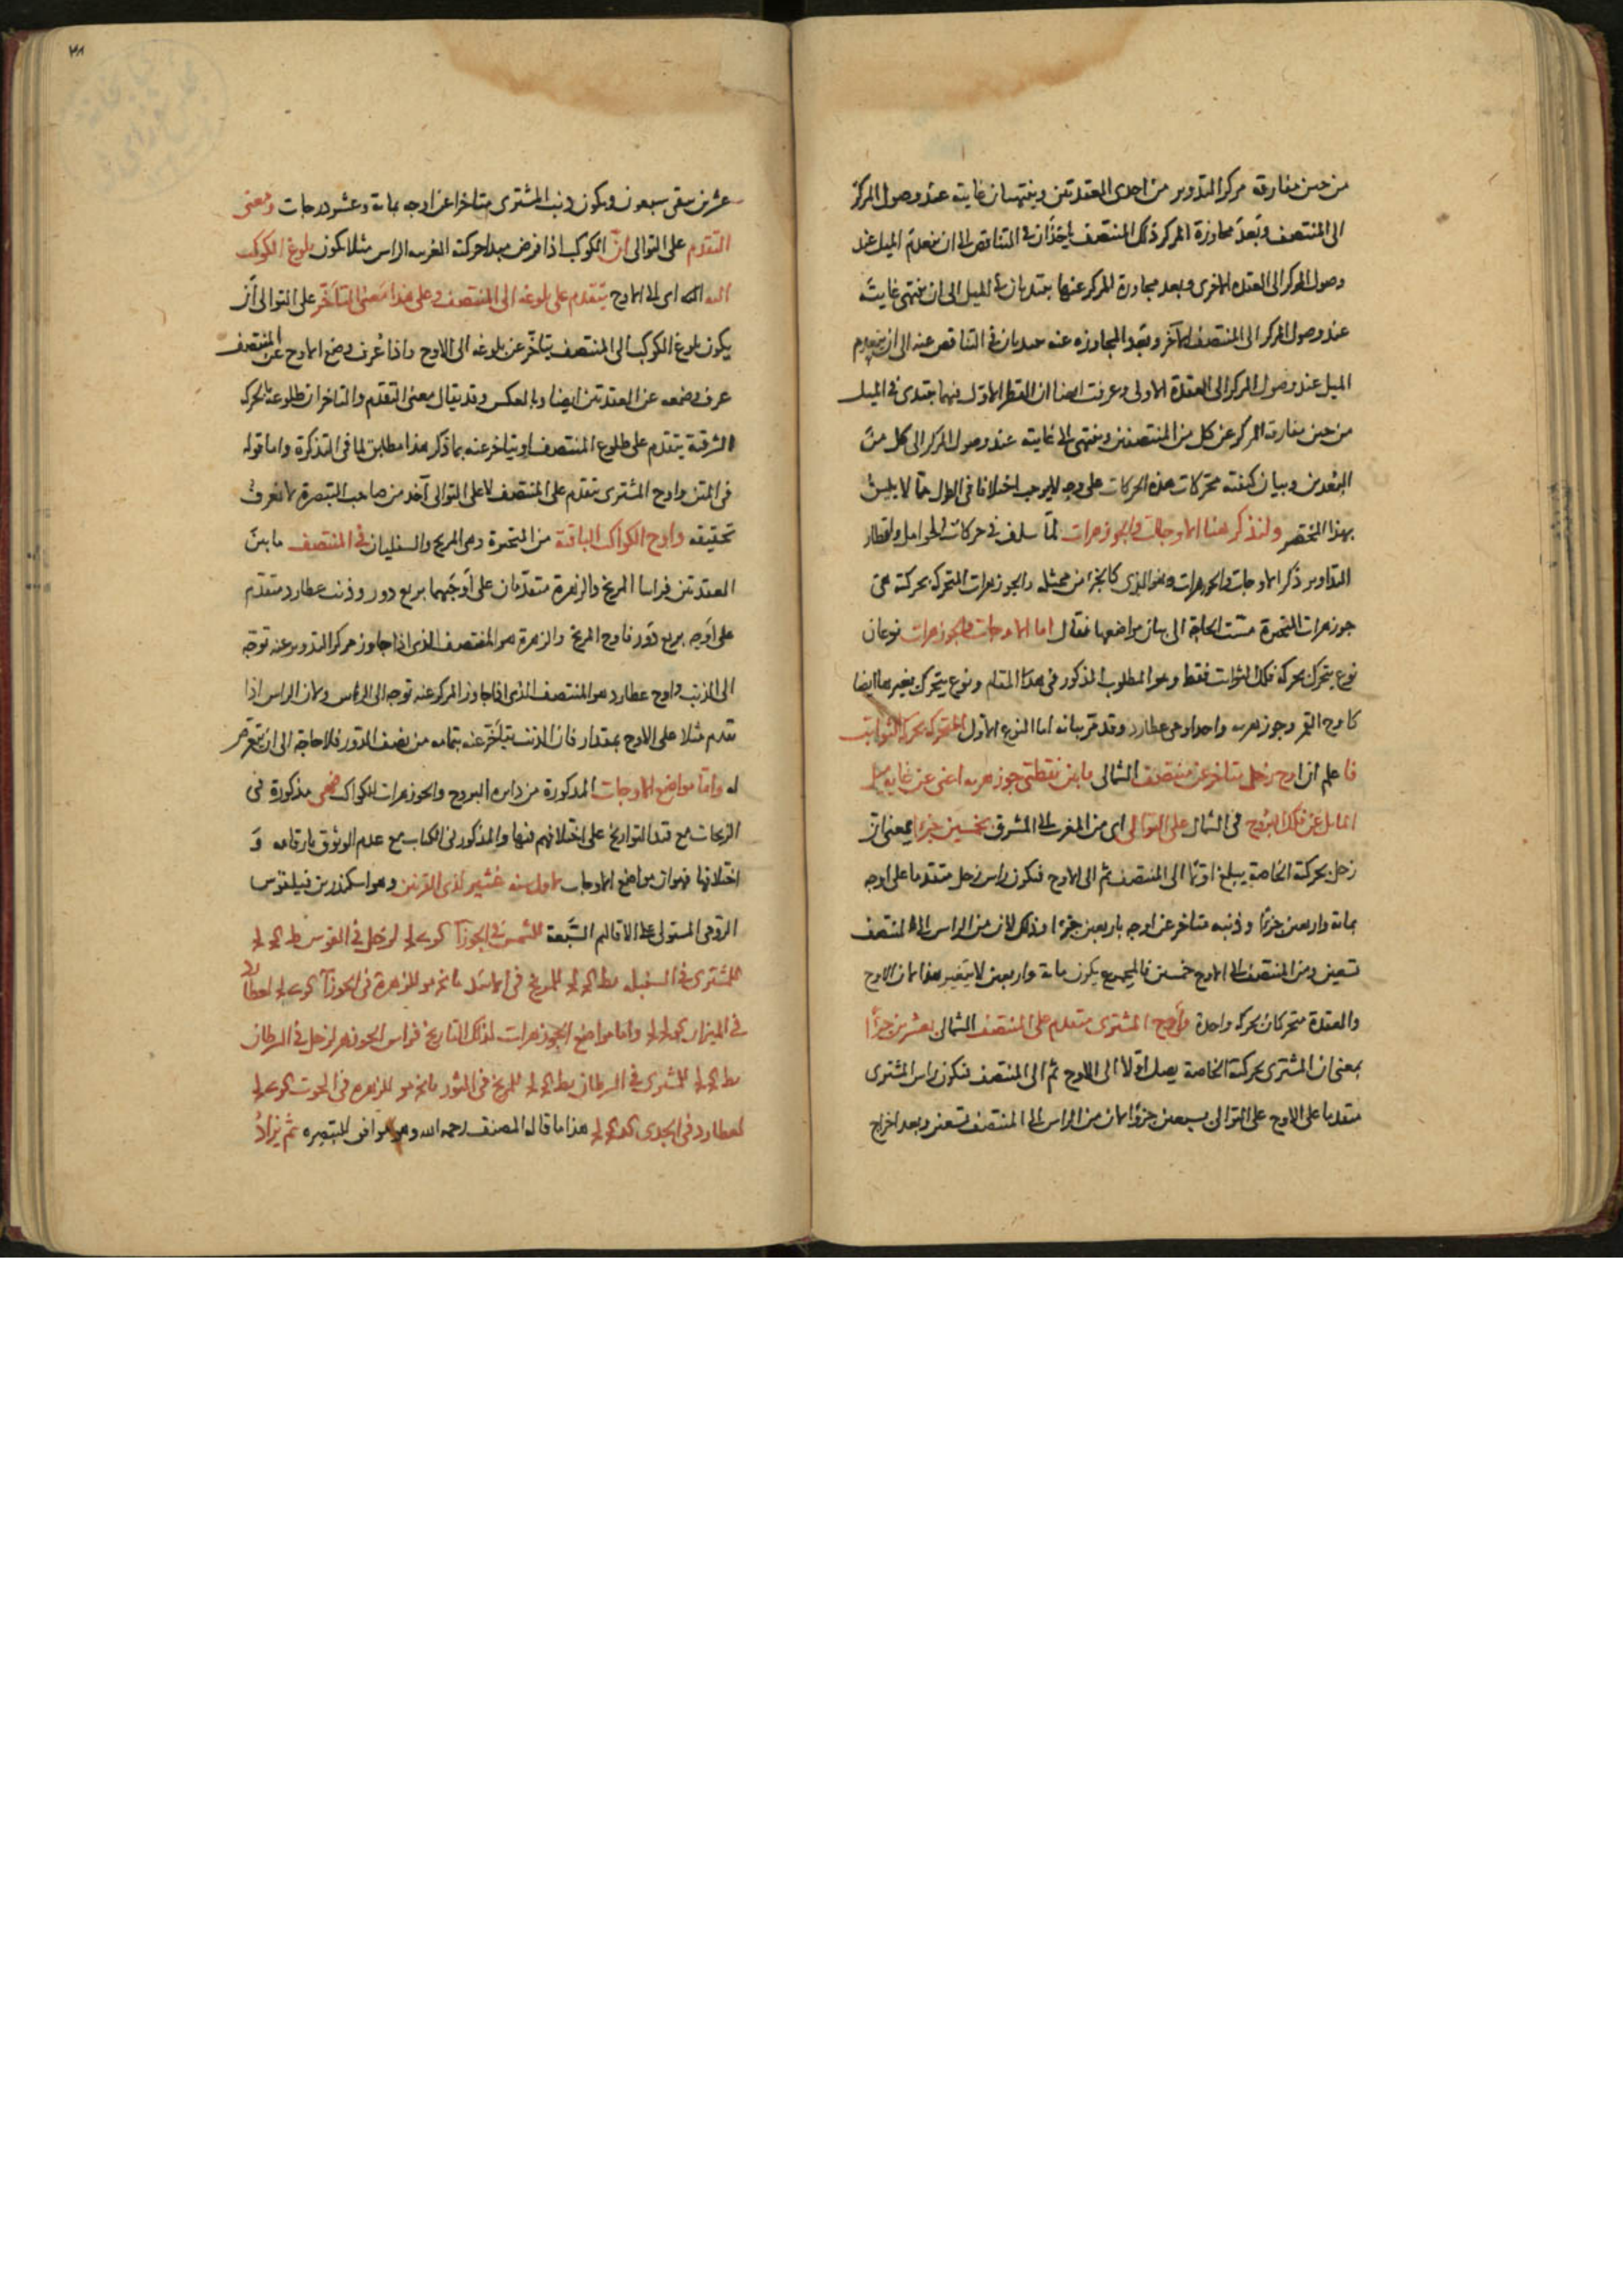 من حين مفارقة مركز التدوير من احدى العقدتين وينتهيان غايته عند وصول المركز
الى المنتصف وبعد مجاوزة المركز ذلك المنتصف ياخذان فى التناقص الى ان ينعدم الميل عند
وصول المركز الى العقدة الاخرى وبعد مجاوزة المركز عنها يبتديان فى الميل الى ان ينتهى غايته
عند وصول المركز الى المنتصف الآخر وبعد المجاوزه عنه يبتديان فى التناقص عنه الى ان ينعدم
الميل عند وصول المركز الى العقدة الاولى وعرفت ايضا ان القطر الاول فيها يبتدى فى الميل
من حين مفارقة المركز عن كل من المنتصفين وينتهى الى غايته عند وصول المركز الى كل من
العقدتين وبيان كيفية محركات هذه الحركات على وجه لايوجب اختلافا فى الطول مما لا يليق
بهذا المختصر ولنذكر هنا الاوجات والجوزهرات لما سلف فى حركات الحوامل واقطار
التداوير ذكر الاوجات والجوزهرات وهو الذى كالجزء من ممثله والجوزهرات المتحركة بحركته هى
جوزهرات المتحيرة مست الحاجة الى بيان مواضعها فقال اما الاوجات والجوزهرات نوعان
نوع يتحرك بحركة فلك الثوابت فقط وهو المطلوب المذكور فى هذا المقام ونوع يتحرك بغيرها ايضا
كاوج القمر وجوزهريه واحد اوجى عطارد وقد مر بيانه اما النوع الاول المتحركة بحركة الثوابت
فاعلم ان اوج زحل متاخر عن منتصف الشمالى مابين نقطتى جوزهريه اعنى عن غاية ميل
المايل عن فلك البروج فى الشمال على التوالى اى من المغرب الى المشرق بخمسين جزءا بمعنى ان
زحل بحركته الخاصة يبلغ اولا الى المنتصف ثم الى الاوج فيكون راس زحل متقدما على اوجه
بماية واربعين جزءا وذنبه متاخر عن اوجه باربعين جزءا وذلك لان من الراس الى المنتصف
تسعين ومن المنتصف الى الاوج خمسين فالمجموع يكون ماية واربعين لا يتغير هذا لان الاوج
والعقدة متحركان بحركة واحدة واوج المشترى متقدم على المنتصف الشمالى بعشرين جزءا
بمعنى ان المشترى بحركته الخاصة يصل اولا الى الاوج ثم الى المنتصف فيكون راس المشترى
متقدما على الاوج على التوالى بسبعين جزوا لان من الراس الى المنتصف تسعين وبعد اخراج
٢٨
عشرين يبقى سبعون ويكون ذنب المشترى متاخرا عن اوجه بماية وعشر درجات ومعنى
التقدم على التوالى ان الكوكب اذا فرض مبدا حركته الراس مثلا يكون بلوغ الكوكب
اليه اى الى الاوج يتقدم على بلوغه الى المنتصف وعلى هذا معنى التاخر على التوالى ان
يكون بلوغ الكوكب الى المنتصف يتاخر عن بلوغه الى الاوج واذا عرف وضع الاوج عن المنتصف
عرف وضعه عن العقدتين ايضا وبالعكس وقد يقال معنى التقدم والتاخر ان طلوعه بالحركة
الشرقية يتقدم على طلوع المنتصف او يتاخر عنه بما ذكر هذا مطابق لما فى التذكرة واما قوله
فى المتن واوج المشترى يتقدم على المنتصف لا على التوالى آخذ من صاحب التبصرة لا نعرف
تحقيقه واوج الكواكب الباقية من المتحيرة وهى المريخ والسفليان فى المنتصف ما بين
العقدتين فراسا المريخ والزهرة متقدمان على اوجيهما بربع دور وذنب عطارد متقدم
على اوجه بربع دور فاوج المريخ والزهرة هو المنتصف الذى اذا جاوز مركز التدوير عنه توجه
الى الذنب واوج عطارد هو المنتصف الذى اذا جاوز المركز عنه توجه الى الراس ولان الراس اذا
تقدم مثلا على الاوج بمقدار فان الذنب يتاخر عنه بتمامه من نصف الدور فلا حاجة الى ان يتعرض
له واما مواضع الاوجات المذكورة من دايرة البروج والجوزهرات للكواكب فهى مذكورة فى
الزيجات مع قيد التواريخ على اختلافهم فيها والمذكور فى الكتاب مع عدم الوثوق بارقامه و
اختلافها فهو ان مواضع الاوجات لاول سنه لذى القرنين وهو اسكندر بن فيلقوس
الرومى المستولى على الاقاليم السبعة للشمس فى الجوزا لزحل فى القوس
للمشترى فى السنبله للمريخ فى الاسد للزهرة فى الجوزا لعطارد
فى الميزان واما مواضع الجوزهرات لذلك التاريخ فراس الجوزهر لزحل فى السرطان
للمشترى فى السرطان للمريخ فى الثور للزهره فى الحوت
لعطارد فى الجدى هذا ما قاله المصنف رحمه الله وهو موافق للتبصره ثم يزاد